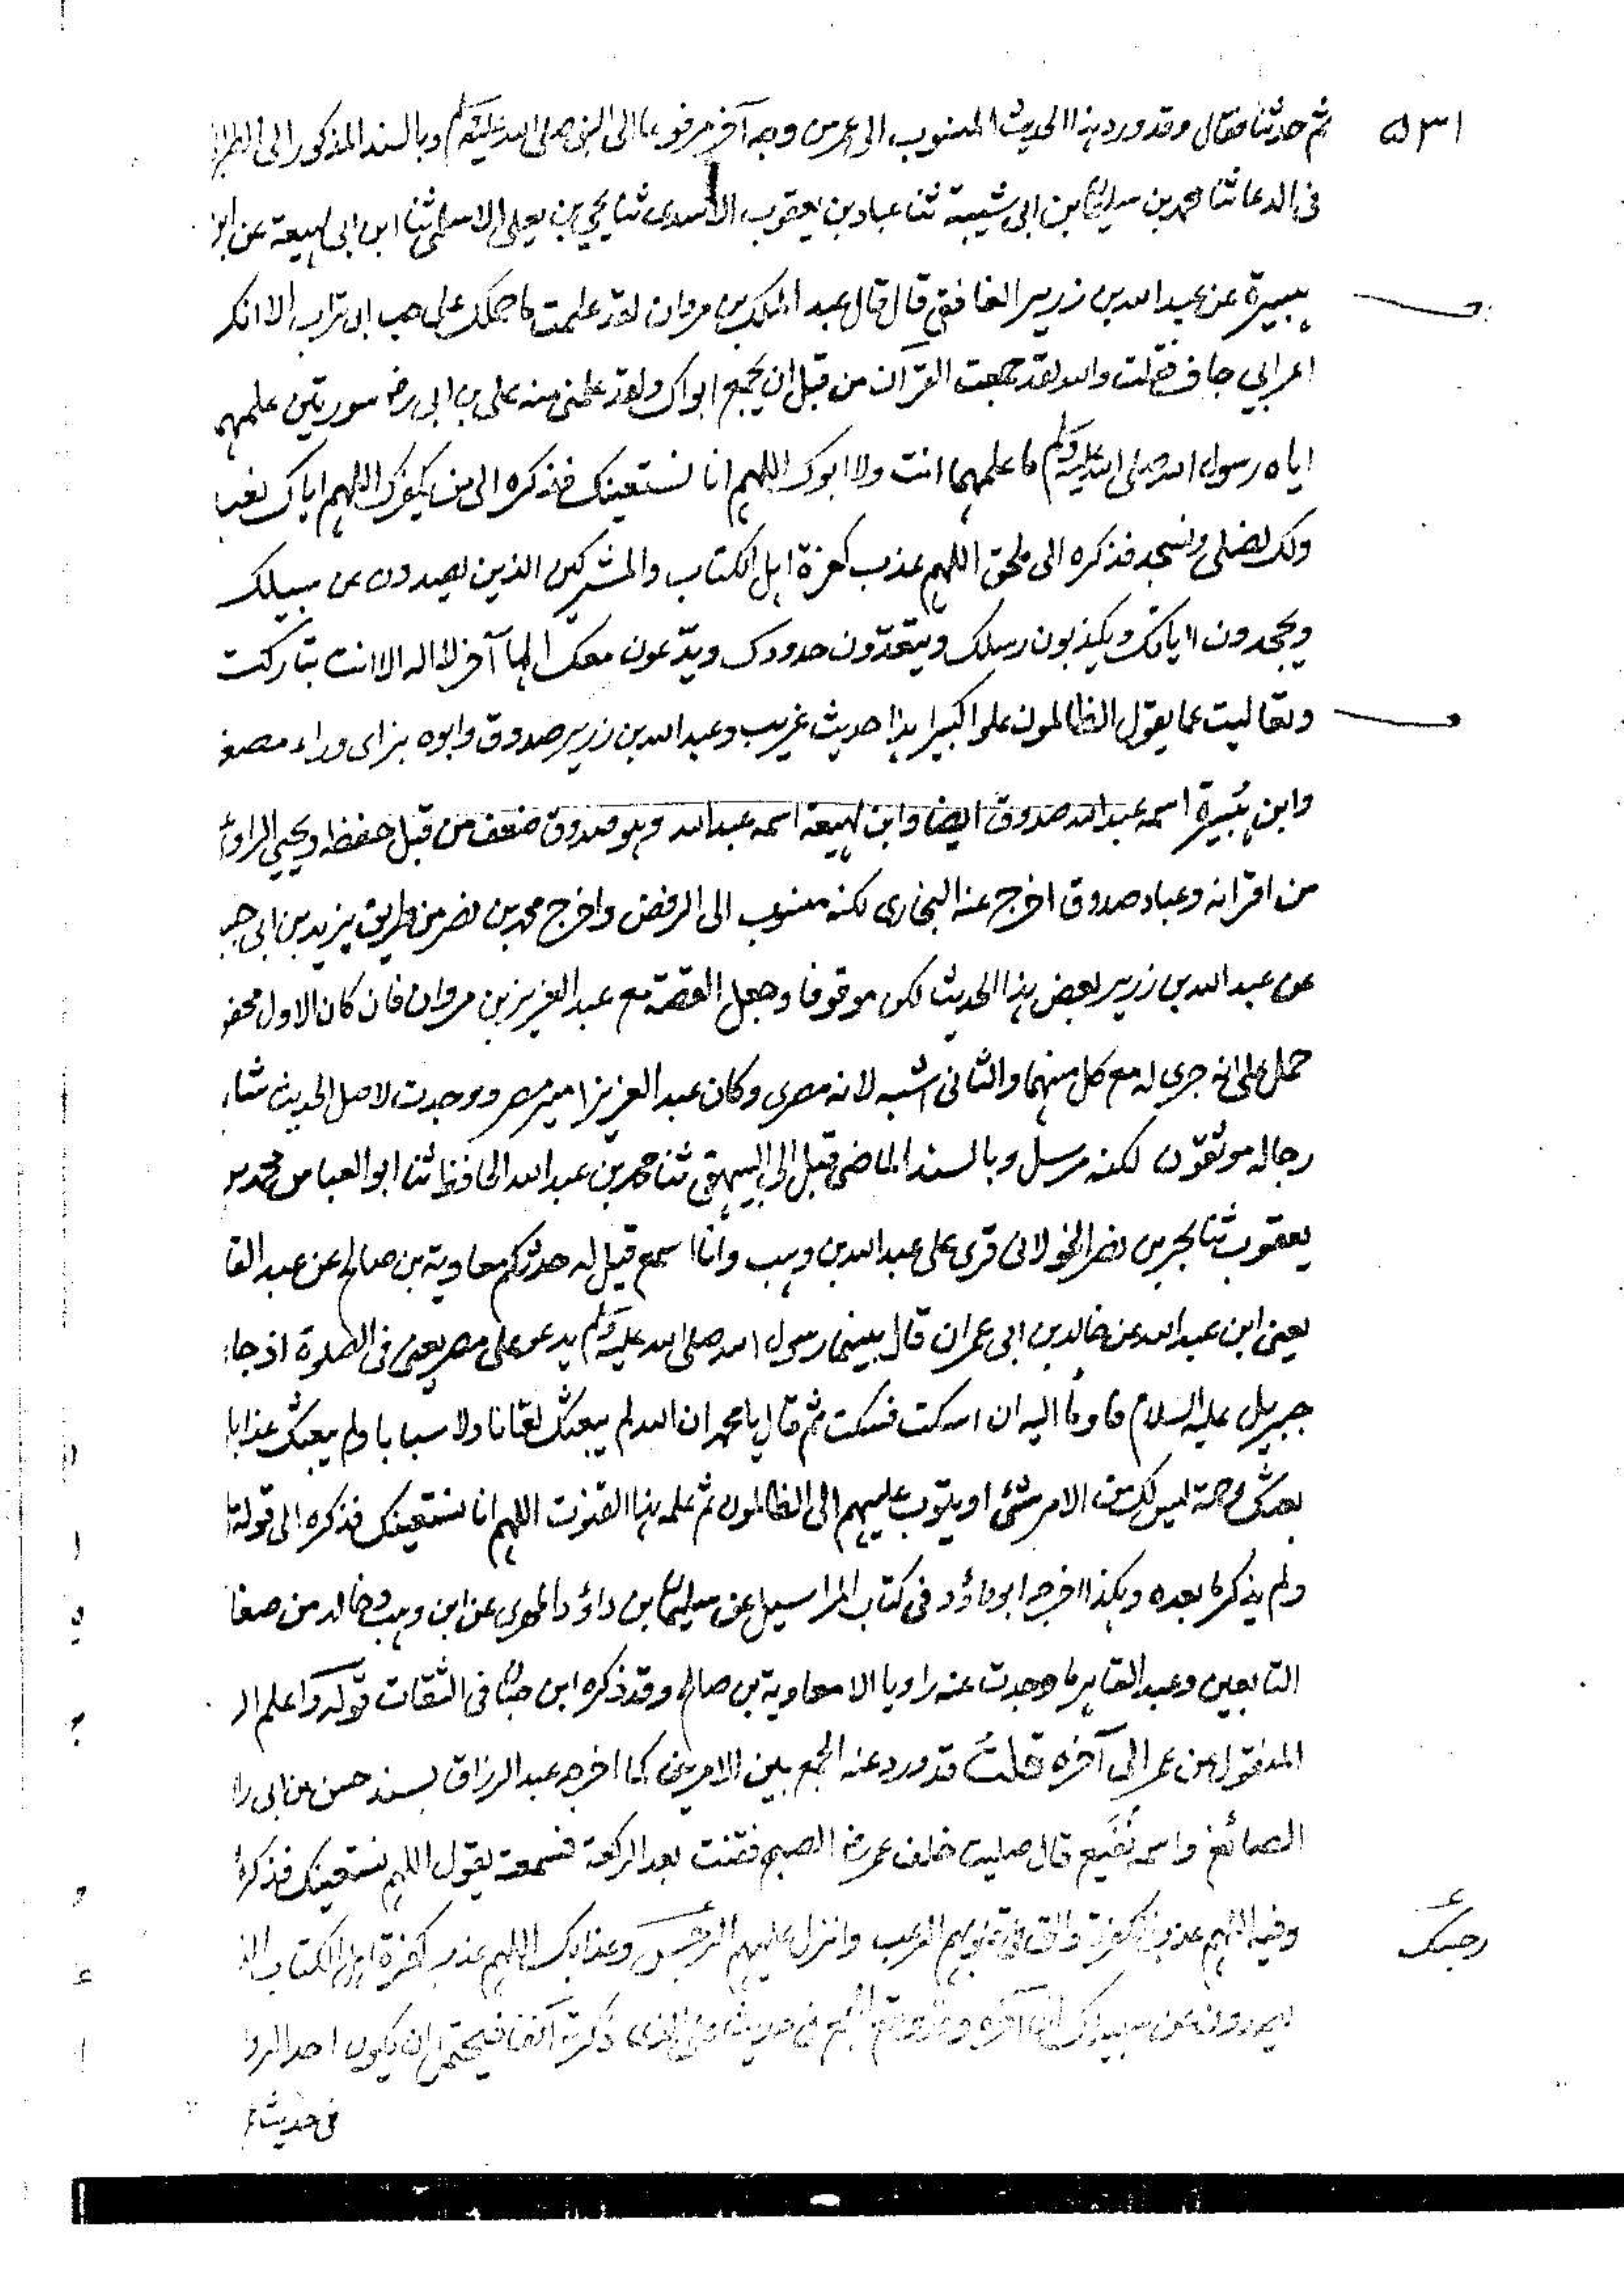 ٥٣١
ثم حدثنا فقال وقد ورد هذا الحديث المنسوب الى عمر من وجه آخر مرفوعا الى النبي صلى الله عليه وسلم وبالسند المذكور الى الطبرا
فى الدعا ثنا محمد بن سليمن بن ابى شيبة ثنا عباد بن يعقوب الاسدى ثنا يحيي بن يعلى الاسلمى ثنا ابن ابى لهيعة عن ابن
هبيرة عن عبد الله بن زرير الغافقى قال قال عبد الملك بن مروان لقد علمت ما حملك على حب ابى تراب الا انك
اعرابي جاف فقلت والله لقد جمعت القرآن من قبل ان يجمع ابواك ولقد علمنى منه على بن ابى رض سورتين علمهما
اياه رسول الله صلى الله عليه وسلم ما علمهما انت ولا ابوك اللهم انا نستعينك فذكره الى من يكفرك اللهم اياك نعبد
ولك نصلى ونسجد فذكره الى ملحق اللهم عذب كفرة اهل الكتاب والمشركين الذين يصدون عن سبيلك
ويجحدون اياتك ويكذبون رسلك ويتعدّون حدودك ويدّعون معك الها آخر لا اله الا انت تباركت
وتعاليت عما يقول الظالمون علوا كبيرا هذا حديث غريب وعبد الله بن زرير صدوق وابوه بزاى وراء مصغر
وابن هُبَيرة اسمه عبد الله صدوق ايضا وابن لهيعة اسمه عبد الله وهو صدوق ضعف من قبل حفظه ويحيي الراوى
من اقرانه وعباد صدوق اخرج عنه البخارى لكنه منسوب الى الرفض واخرج محمد بن نصر من طريق يزيد بن ابى حبيب
عن عبد الله بن زرير بعض هذا الحديث لكن موقوفا وجعل القصة مع عبد العزيز بن مروان فان كان الاول محفو
حمل على انه جرى له مع كل منهما والثانى اشبه لانه مصرى وكان عبد العزيز امير مصر ووجدت لاصل الحديث شاهدا
رجاله موثقون لكنه مرسل وبالسند الماضى قبل الى البيهقى ثنا محمد بن عبد الله الحافظ ثنا ابو العباس محمد بن
يعقوب ثنا بحر بن نصر الخولانى قرى على عبد الله بن وهب وانا اسمع قيل له حدثكم معاوية بن صالح عن عبد القا
يعنى ابن عبد الله عن خالد بن ابى عمران قال بينما رسول الله صلى الله عليه وسلم يدعو على مضر يعنى فى الصلوة اذ جاء
جبريل عليه السلام فاومأ اليه ان اسكت فسكت ثم قال يا محمد ان الله لم يبعثك لعّانا ولا سبابا ولم يبعثك عذابا
بعثك رحمة ليس لك من الامر شئ او يتوب عليهم الى الظالمون ثم علمه هذا القنوت اللهم انا نستعينك فذكره الى قوله
ولم يذكر ما بعده وهكذا اخرجه ابو داؤد فى كتاب المراسيل عن سليمن بن داؤد المهرى عن ابن وهب وخالد من صغا
التابعين وعبد القاهر ما وجدت عنه راويا الا معاوية بن صالح وقد ذكره ابن حبان فى الثقات قوله واعلم ان
المنقول عن عمر الى آخره قلت قد ورد عنه الجمع بين الامرين كما اخرجه عبد الرزاق بسند حسن عن ابى را
الصائغ واسمه نُفَيع قال صليت خلف عمر رض الصبح فقنت بعد الركعة فسمعته يقول اللهم نستعينك فذكره
وفيه اللهم عذب الكفرة والق فى قلوبهم الرعب وانزل عليهم الرجس وعذابك اللهم عذب كفرة اهل الكتاب الذ
رجسك
يصدون عن سبيلك الى آخره وقد وقع فى حديث الذى ذكرته آنفا فيحتمل ان يكون احد الروا
فى حديث